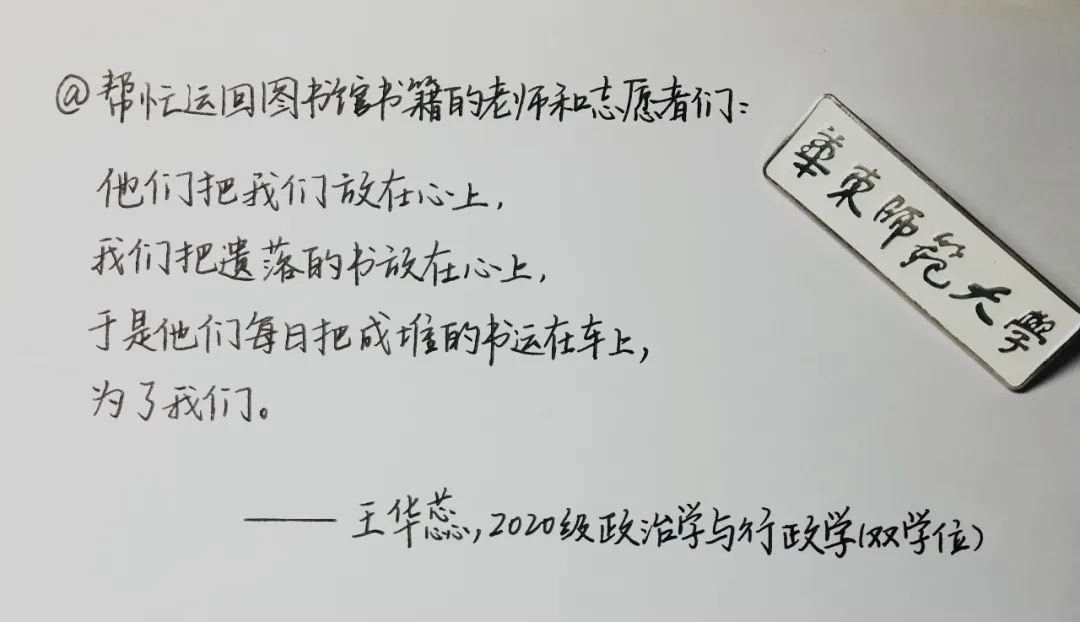 @帮忙运回图书馆书籍的老师和志愿者们:
他们把我们放在心上,
我们把遗落的书放在心上,
于是他们每日把成堆的书运在车上,
为了我们。
—— 王华蕊,2020级政治学与行政学(双学位)
華東师范大學